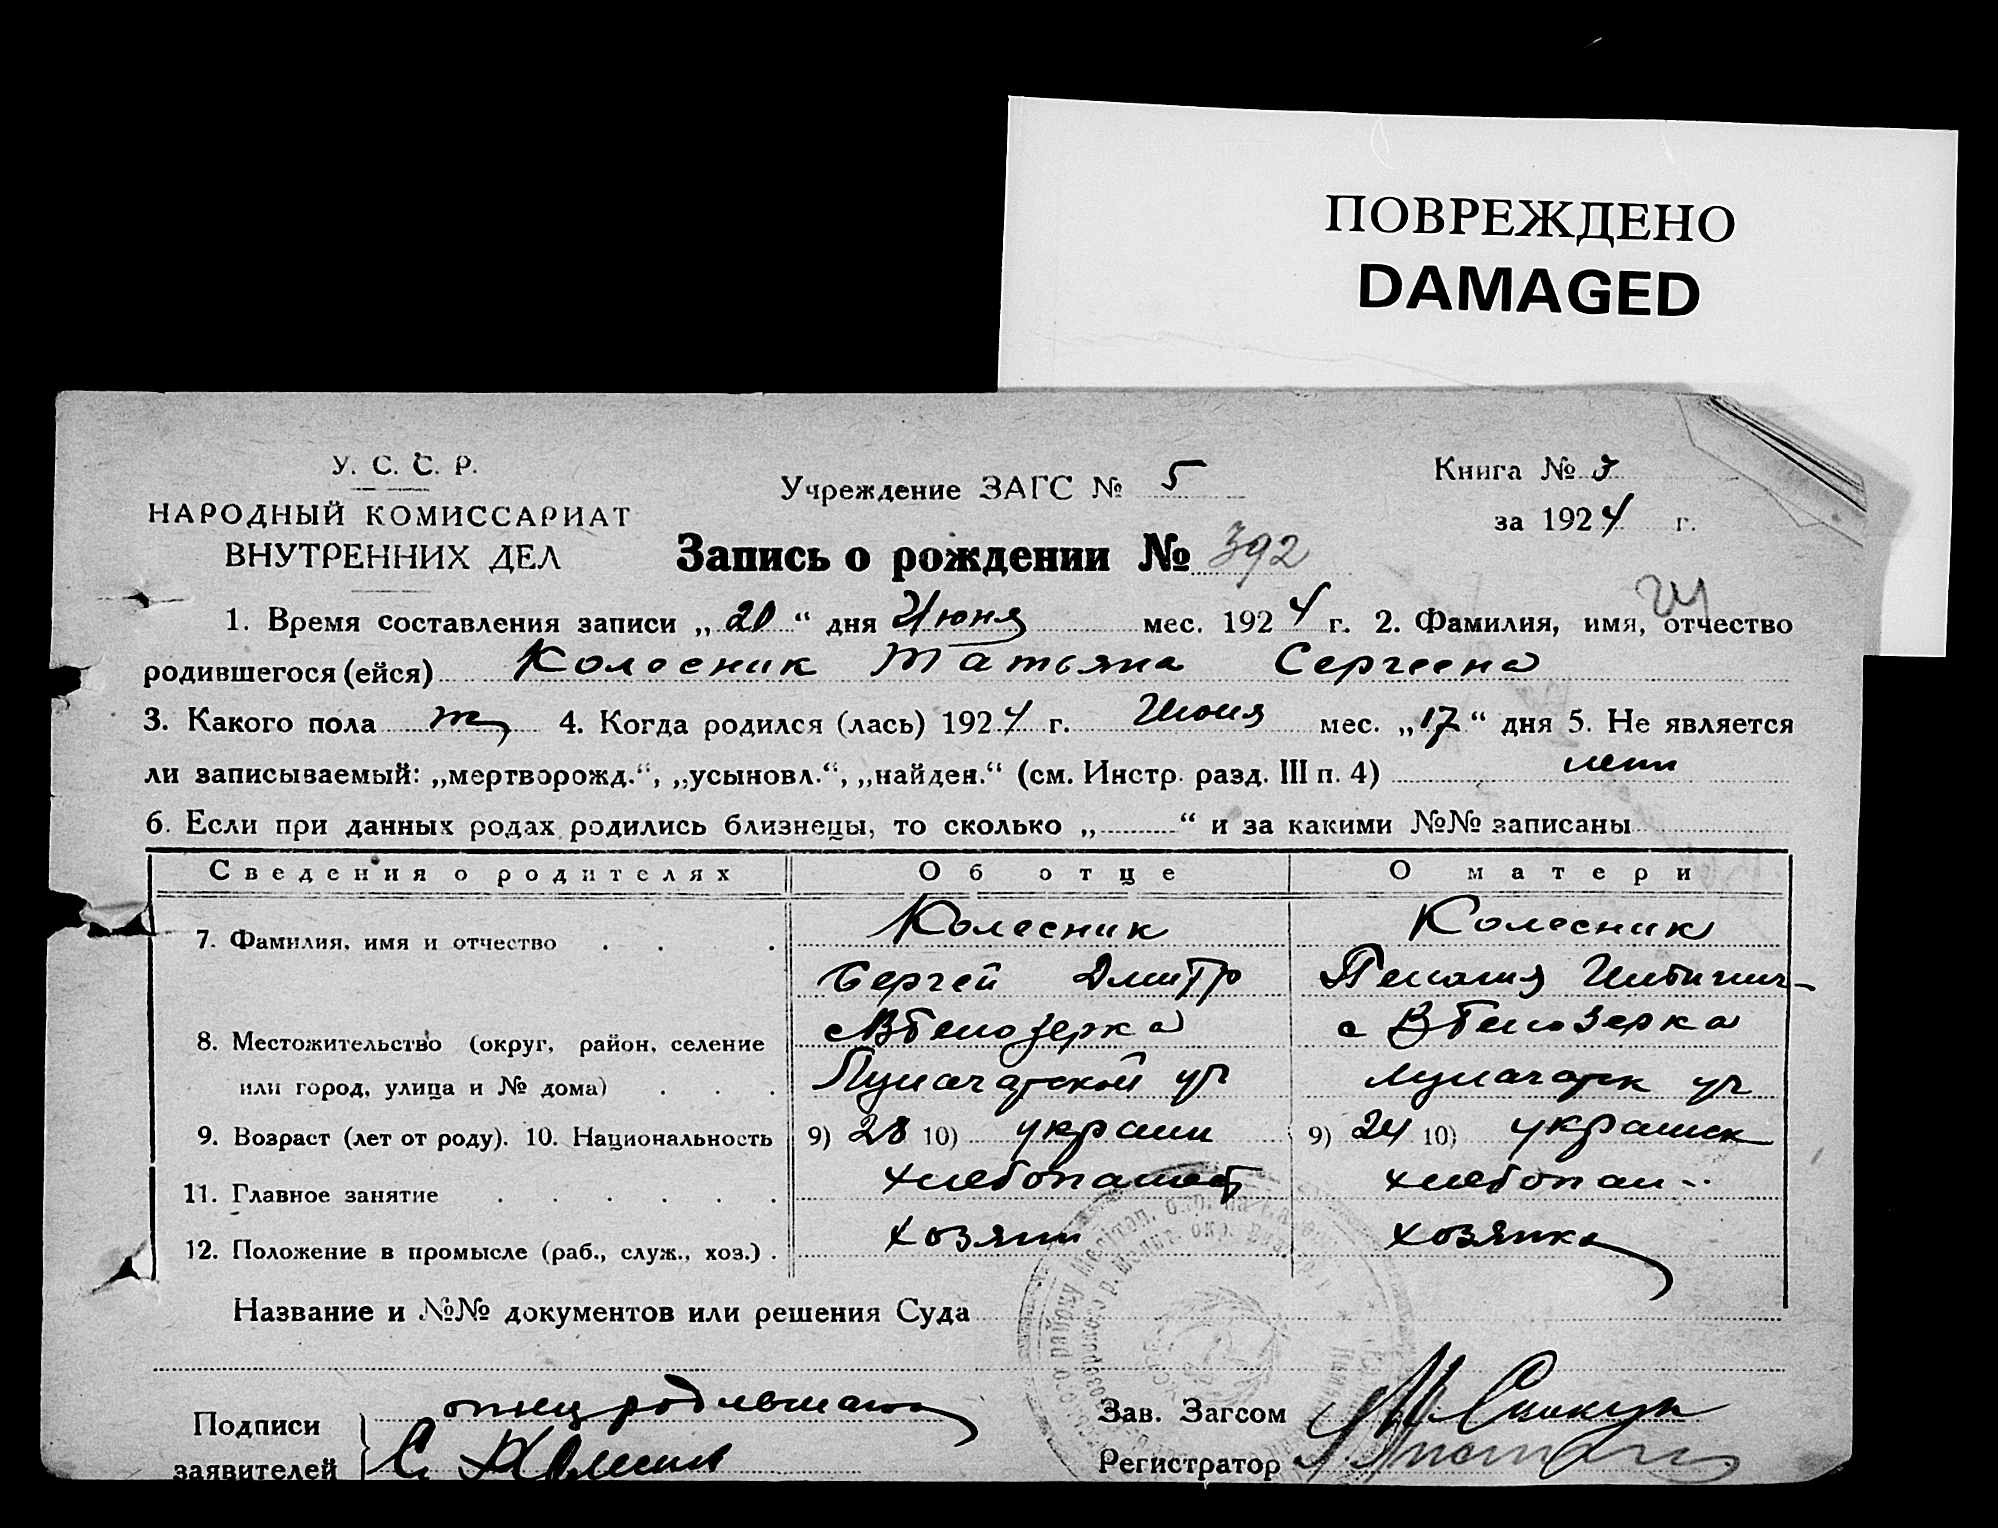 ПОВРЕЖДЕНО
DAMAGED
У. С. С. Р.
НАРОДНЫЙ КОМИССАРИАТ
ВНУТРЕННИХ ДЕЛ
Учреждение ЗАГС № 5
Книга № 3
за 1924 г.
Запись о рождении № 392
1. Время составления записи „20“ дня Июня мес. 1924 г. 2. Фамилия, имя, отчество
родившегося (ейся) Колесник Татьяна Сергеена
3. Какого пола ж 4. Когда родился (лась) 1924 г. Июня мес. „17“ дня 5. Не является
ли записываемый: „мертворожд.“, „усыновл.“, „найден.“ (см. Инстр. разд. III п. 4)
6. Если при данных родах родились близнецы, то сколько „ “ и за какими №№ записаны
Сведения о родителях Об отце О матери
7. Фамилия, имя и отчество Колесник Колесник
Сергей Дмитр Пелагия
8. Местожительство (округ, район, селение с Вбелозерка с Вбелозерка
или город, улица и № дома)
9. Возраст (лет от роду). 10. Национальность 9) 28 10) украин 9) 24 10) украинск
11. Главное занятие хлебопашест хлебопаш
12. Положение в промысле (раб., служ., хоз.) хозяин хозяйка
Название и №№ документов или решения Суда
Подписи отец
заявителей С.
Зав. Загсом
Регистратор